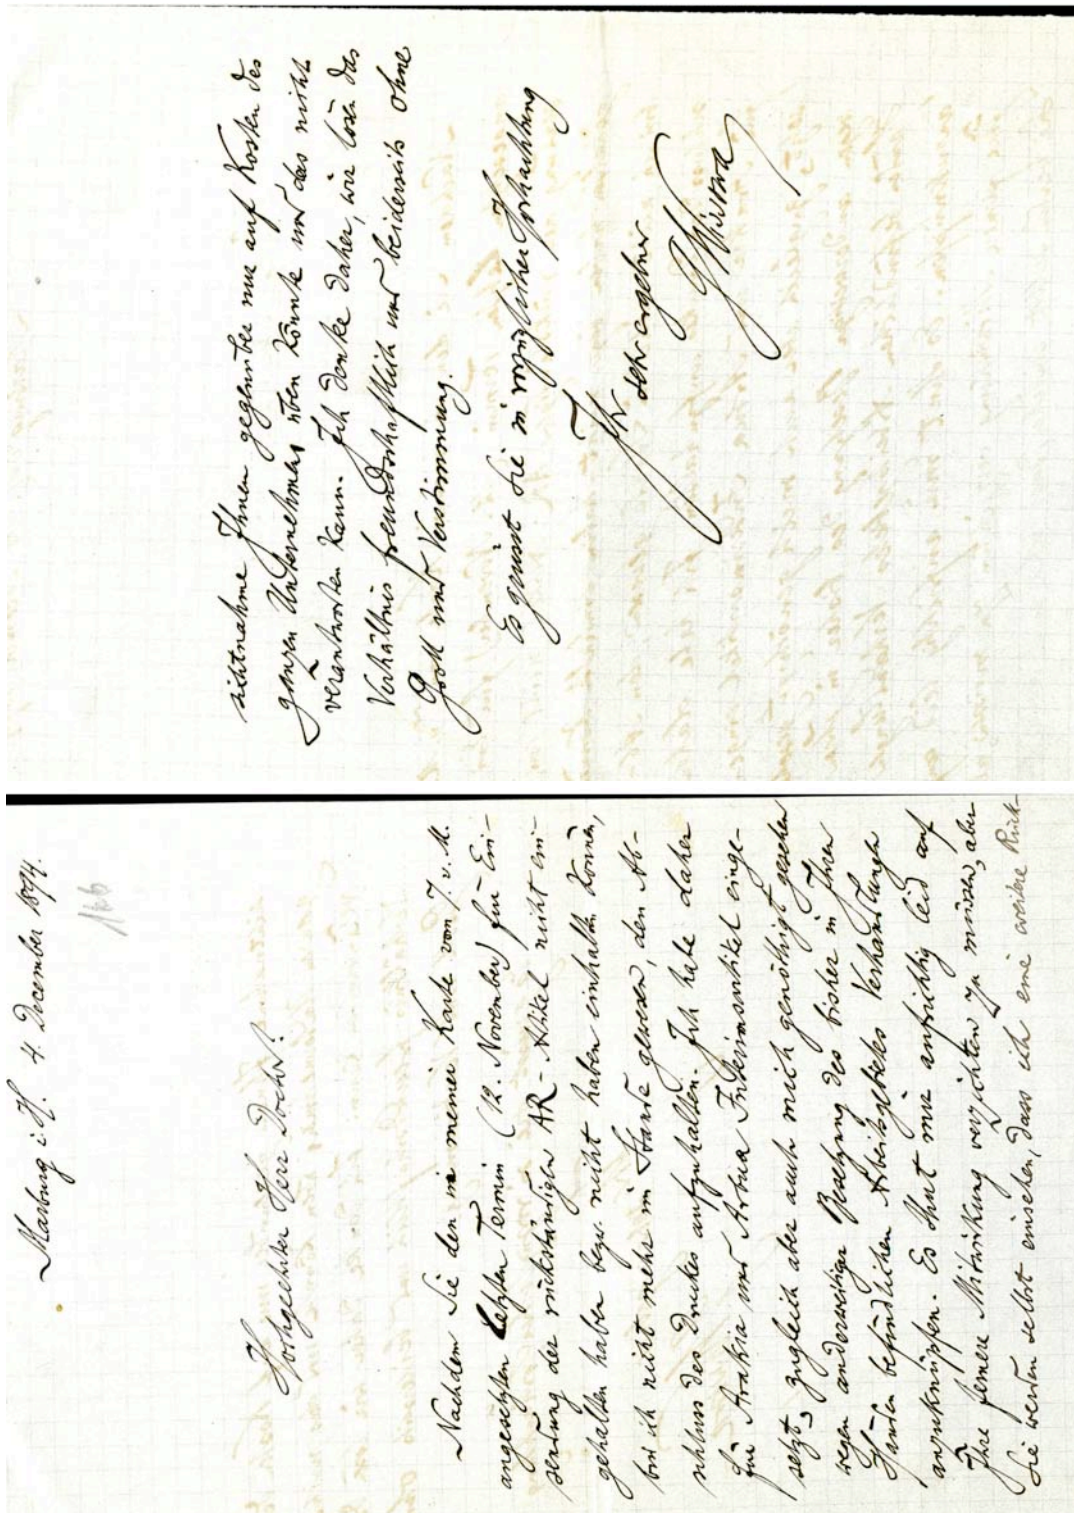 Marburg i. H. 4. December 1894.
166
Hochgeehrter Herr Doctor!
Nachdem Sie den in meiner Karte vom 7. v. M.
angesetzten letzten Termin (12. November) für Ein-
sendung der rückständigen AR-Artikel nicht ein
gehalten haben bezw. nicht haben einhalten können,
bin ich nicht mehr im Stande gewesen, den Ab-
schluss des Druckes aufzuhalten. Ich habe daher
für Arabia und Arbua Interimsartikel einge-
setzt, zugleich aber auch mich genöthigt gesehen
wegen anderweitiger Besetzung des bisher in Ihren
Händen befindlichen Arbeitsgebietes Verhandlungen
anzuknüpfen. Es thut mir aufrichtig leid auf
Ihre fernere Mitwirkung verzichten zu müssen, aber
Sie werden selbst einsehen, dass ich eine weitere Rück-
sichtnahme Ihnen gegenüber nur auf Kosten des
ganzen Unternehmens üben könnte und das nicht
verantworten kann. Ich denke daher, wir lösen das
Verhältnis freundschaftlich und beiderseits ohne
Groll und Verstimmung.
Es grüsst Sie in vorzüglicher Hochachtung
Ihr
sehr ergebner
GWissowa